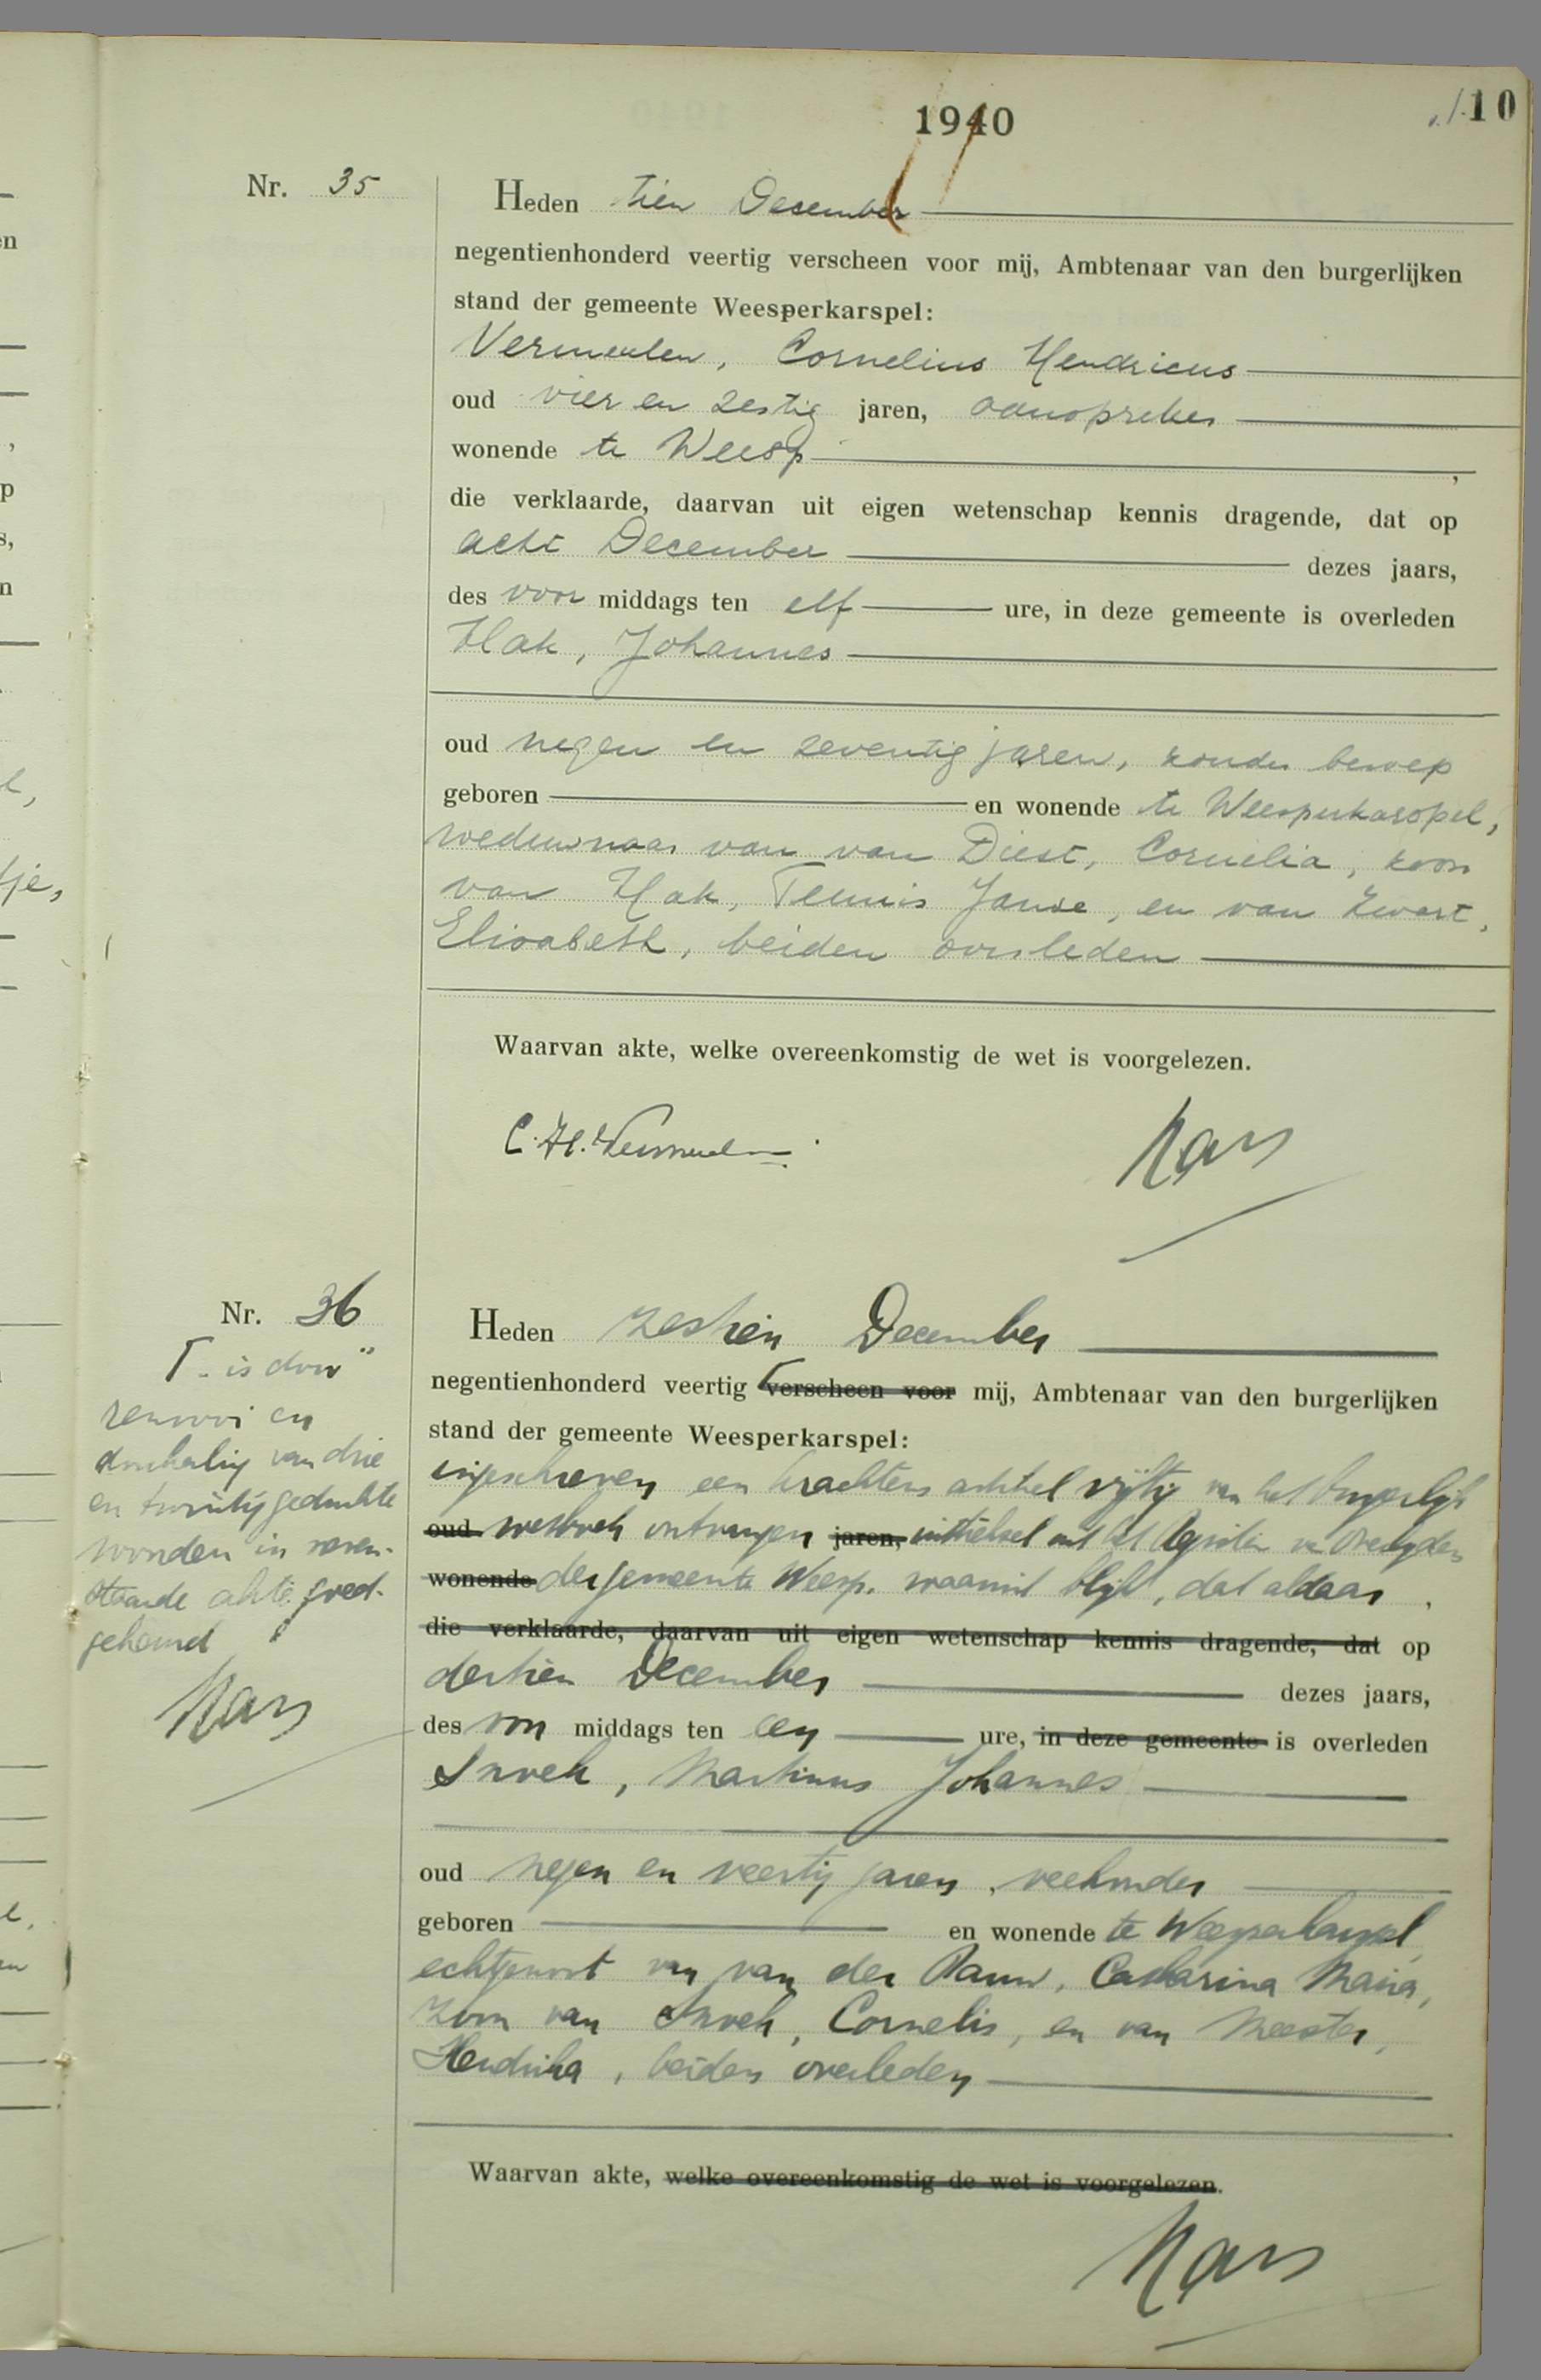 1940
10
Nr. 35
Heden tien December
negentienhonderd veertig verscheen voor mij, Ambtenaar van den burgerlijken
stand der gemeente Weesperkarspel:
Vermeulen, Cornelius Hendricus
oud vier en zestig jaren, aanspreker
wonende te Weesp,
die verklaarde, daarvan uit eigen wetenschap kennis dragende, dat op
acht December dezes jaars,
des voor middags ten elf ure, in deze gemeente is overleden
Hak, Johannes
oud negen en zeventig jaren, zonder beroep
geboren en wonende te Weesperkarspel,
weduwnaar van van Diest, Cornelia, zoon
van Hak, Teunis Janse, en van Zwart,
Elisabeth, beiden overleden
Waarvan akte, welke overeenkomstig de wet is voorgelezen.
C. H. Vermeulen
Nr. 36
Γ "is door"
renvooi en
doorhaling van drie
en twintig gedrukte
woorden in neven-
staande akte goed-
gekeurd
Heden zestien December
negentienhonderd veertig Γ verscheen voor mij, Ambtenaar van den burgerlijken
stand der gemeente Weesperkarspel:
ingeschreven een krachtens artikel vijftig van het burgerlijk
oud wetboek ontvangen jaren, uittreksel uit het register van overlijden
wonende der gemeente Weesp, waaruit blijkt, dat aldaar,
die verklaarde, daarvan uit eigen wetenschap kennis dragende, dat op
dertien December dezes jaars,
des voor middags ten een ure, in deze gemeente is overleden
Snoek, Martinus Johannes
oud negen en veertig jaren, veehouder
geboren en wonende te Weesperkarspel,
echtgenoot van van der Pauw, Catharina Maria,
zoon van Snoek, Cornelis, en van Meester,
Hendrika, beiden overleden
Waarvan akte, welke overeenkomstig de wet is voorgelezen.